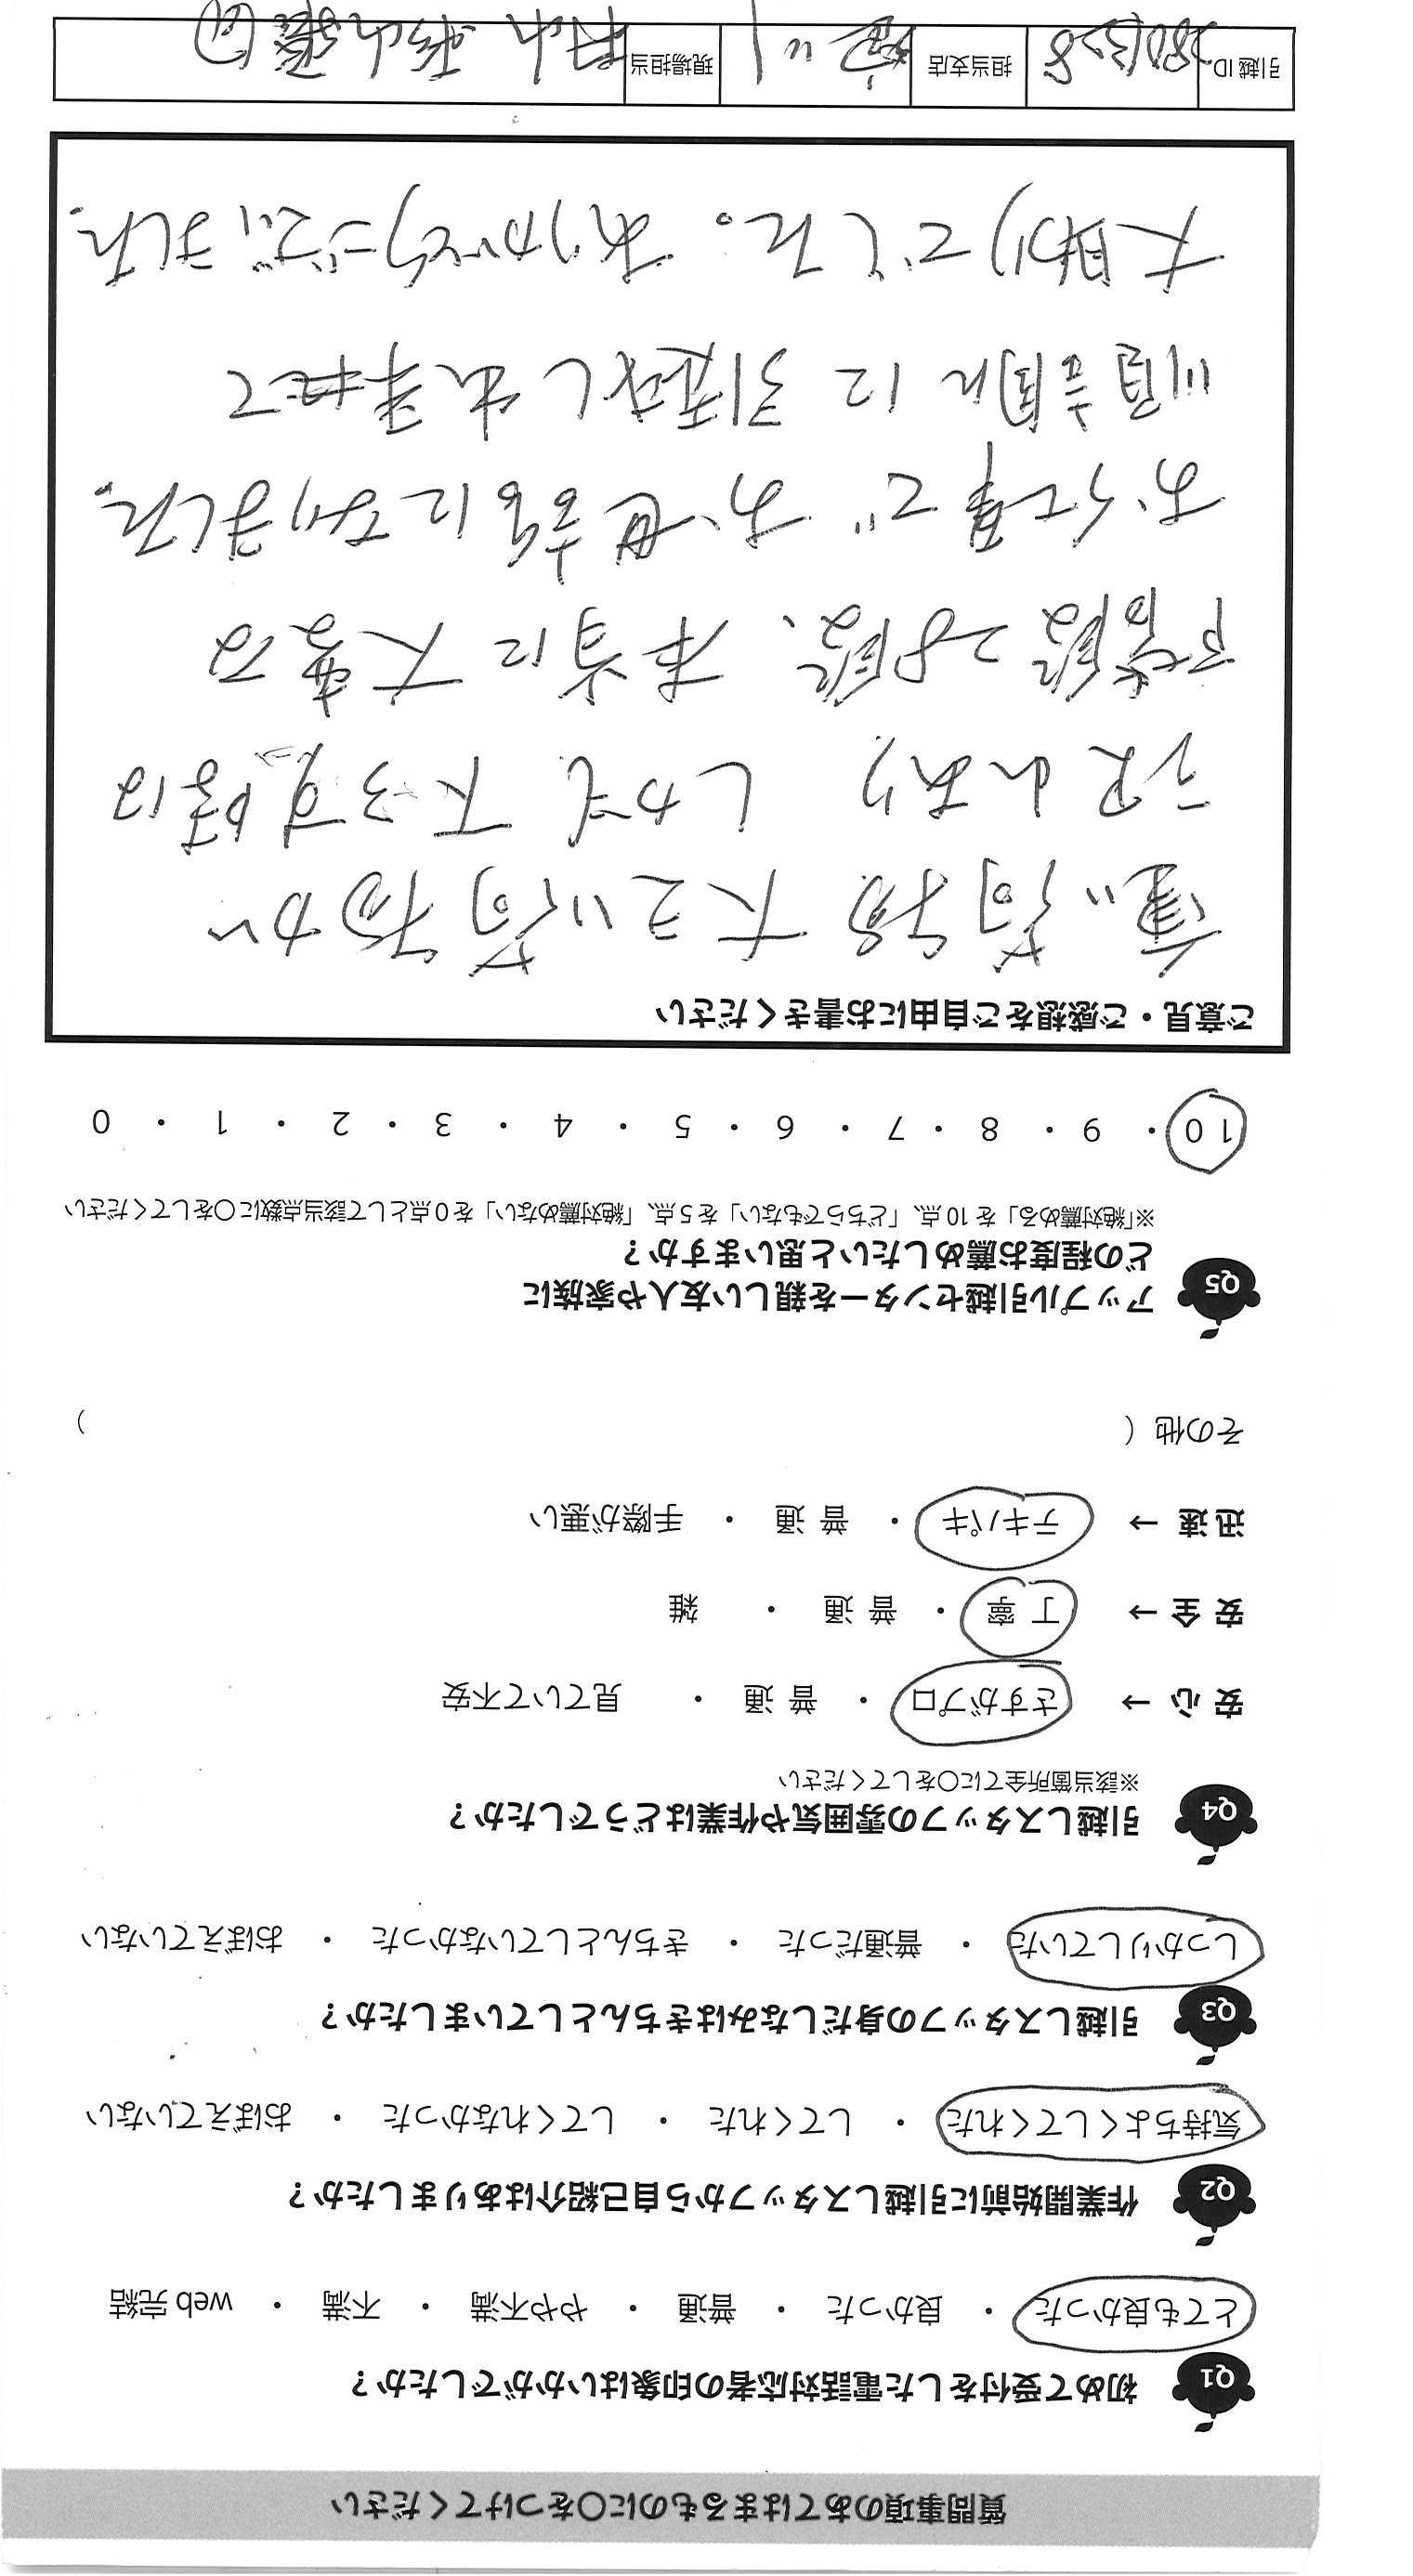 質問事項のあてはまるものに○をつけてください
Q1 初めて受付をした電話対応者の印象はいかがでしたか？
とても良かった ・ 良かった ・ 普通 ・ やや不満 ・ 不満 ・ web 完結
Q2 作業開始前に引越しスタッフから自己紹介はありましたか？
気持ちよくしてくれた ・ してくれた ・ してくれなかった ・ おぼえていない
Q3 引越しスタッフの身だしなみはきちんとしていましたか？
しっかりしていた ・ 普通だった ・ きちんとしていなかった ・ おぼえていない
Q4 引越しスタッフの雰囲気や作業はどうでしたか？
※該当箇所全てに○をしてください
安 心 → さすがプロ ・ 普 通 ・ 見ていて不安
安 全 → 丁 寧 ・ 普 通 ・ 雑
迅 速 → テキパキ ・ 普 通 ・ 手際が悪い
その他（ ）
Q5 アップル引越センターを親しい友人や家族に
どの程度お薦めしたいと思いますか？
※「絶対薦める」を 10 点、「どちらでもない」を 5 点、「絶対薦めない」を 0 点として該当点数に○をしてください
10 ・ 9 ・ 8 ・ 7 ・ 6 ・ 5 ・ 4 ・ 3 ・ 2 ・ 1 ・ 0
ご意見・ご感想をご自由にお書きください
重い荷物 大きい荷物が
沢山あり しかも 下ろす時は
階段 28段、本当に大変な
お仕事で お世話になりました。
順調に引越し出来て
大助りでした。ありがとうございました。
引越 ID 担当支店 現場担当